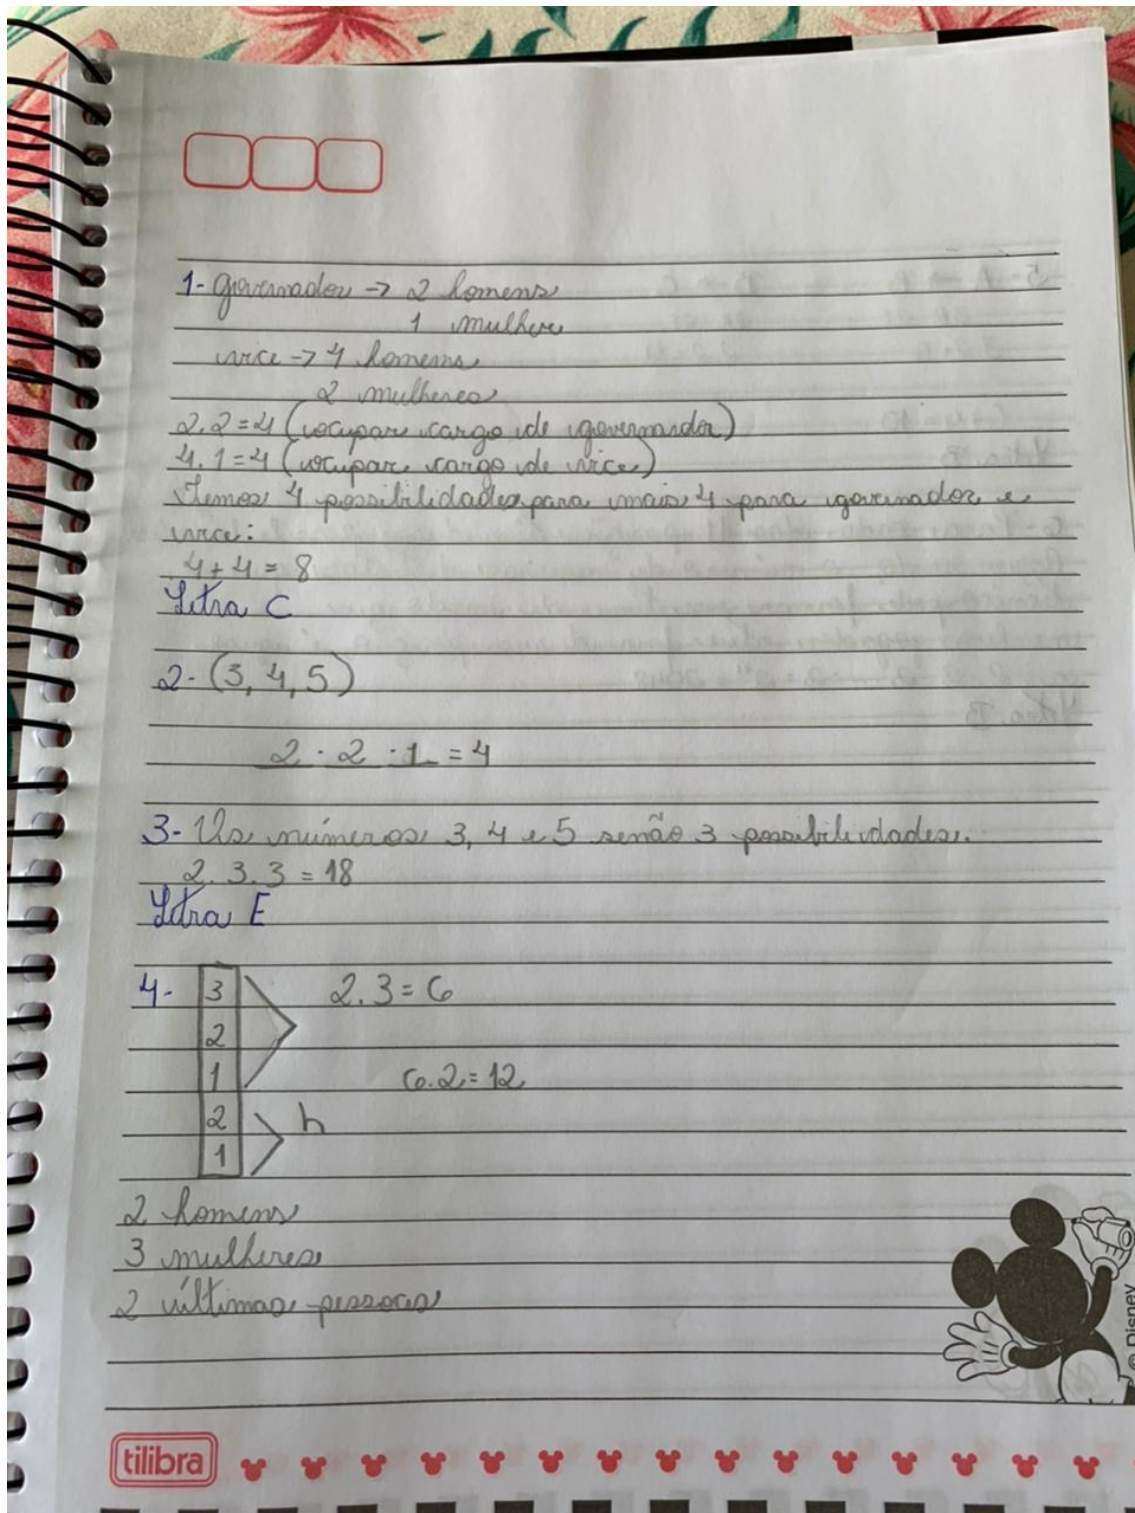 1- governador -> 2 homens
1 mulher
vice -> 4 homens
2 mulheres
2.2=4 (ocupar cargo de governador)
4.1=4 (ocupar cargo de vice)
Temos 4 possibilidades para mais 4 para governador e
vice:
4+4=8
Letra C
2- (3, 4, 5)
2 . 2 . 1 = 4
3- Os números 3, 4 e 5 senão 3 possibilidades.
2.3.3=18
Letra E
4- 3 2.3=6
2
1 6.2=12
2 h
1
2 homens
3 mulheres
2 últimas pessoas
© Disney
tilibra